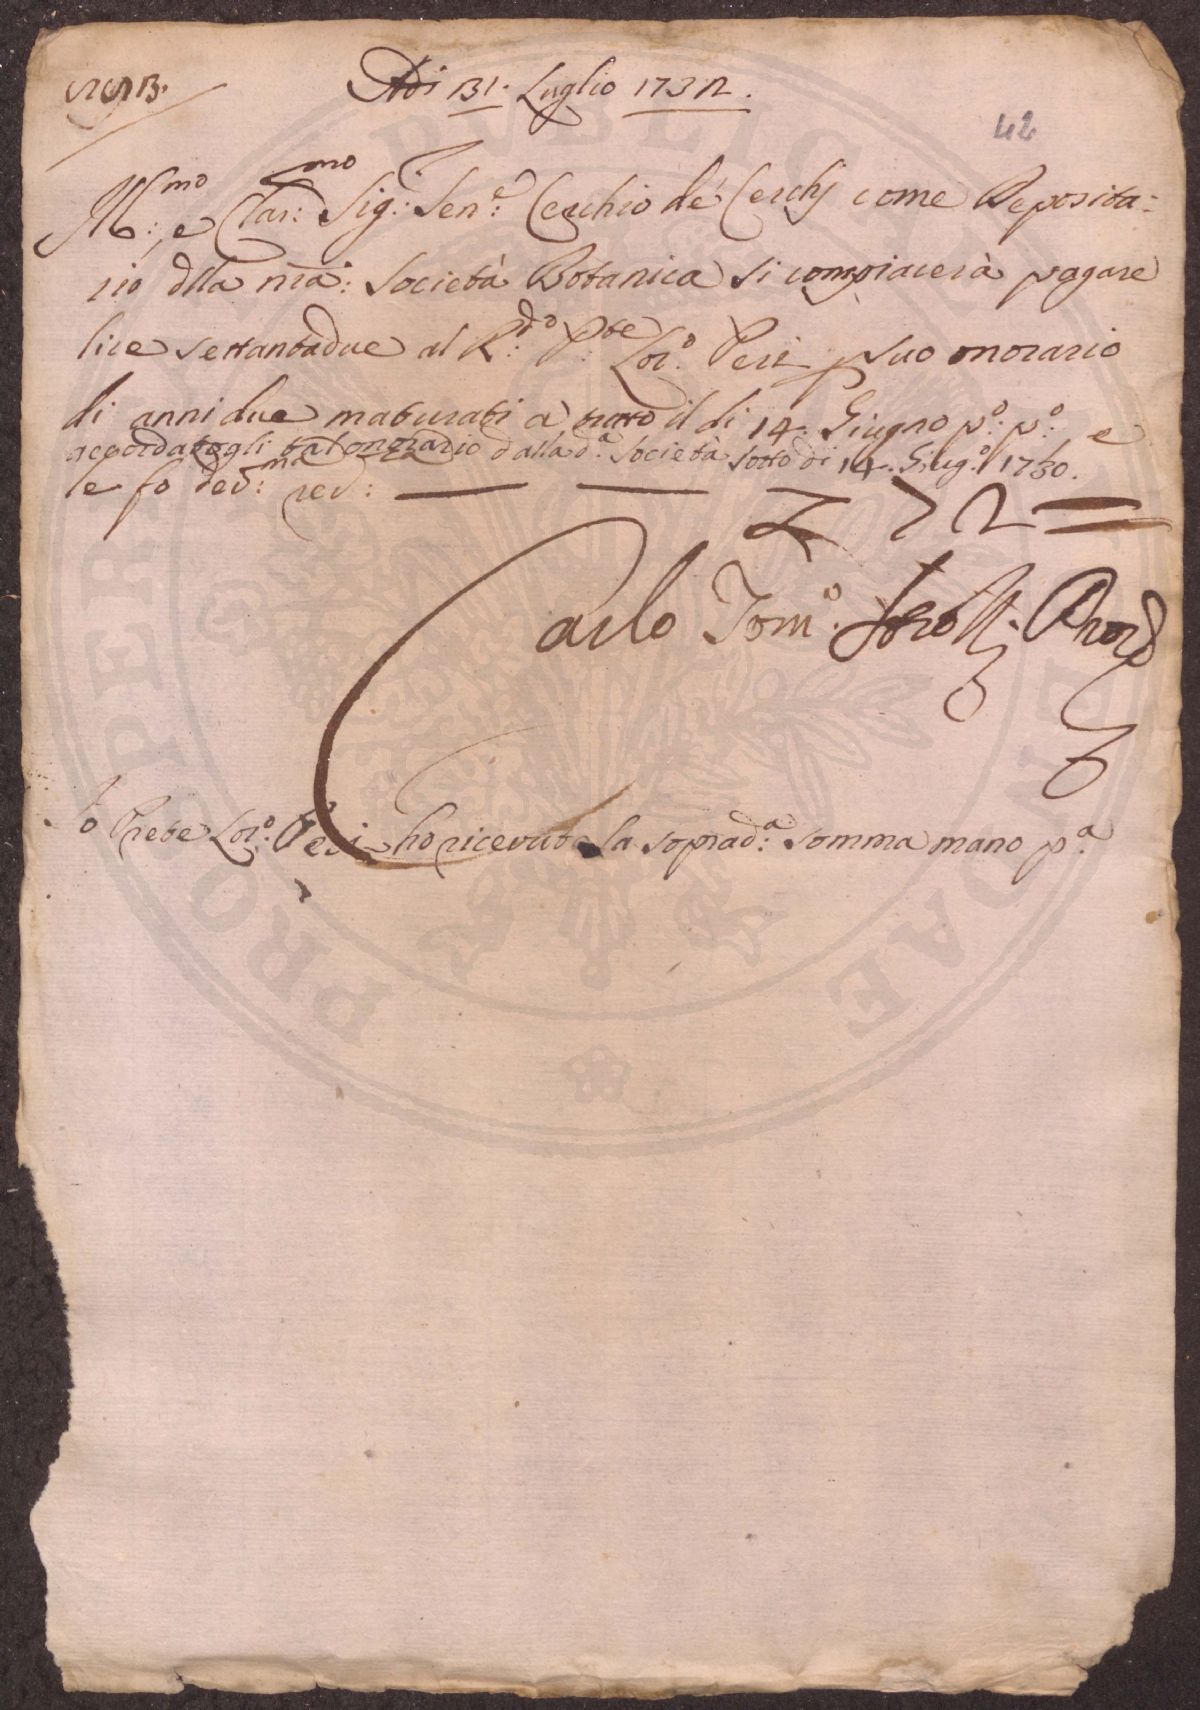 Adi 31. Luglio 1732.
42
Ill:mo, e Clar:mo Sig:r Sen:e Cerchio de' Cerchj come Deposita:
rio dlla nr̃a: Società Botanica si compiacerà pagare
lire settantadue al R:do P:te Lor:o Peri p suo onorario
di anni due maturati a tutto il dì 14. Giugno p:o p:o, e
accordatogli tal onorario dalla d:a Società sotto dì 14. Giug:o 1730.
le fo dev:ma rev:
£ 72 =
Carlo Tom:o
Io Prete Lor:o Peri ho ricevuto la soprad:a somma mano p:a
PROPERITATI PUBLICAE AUGENDAE